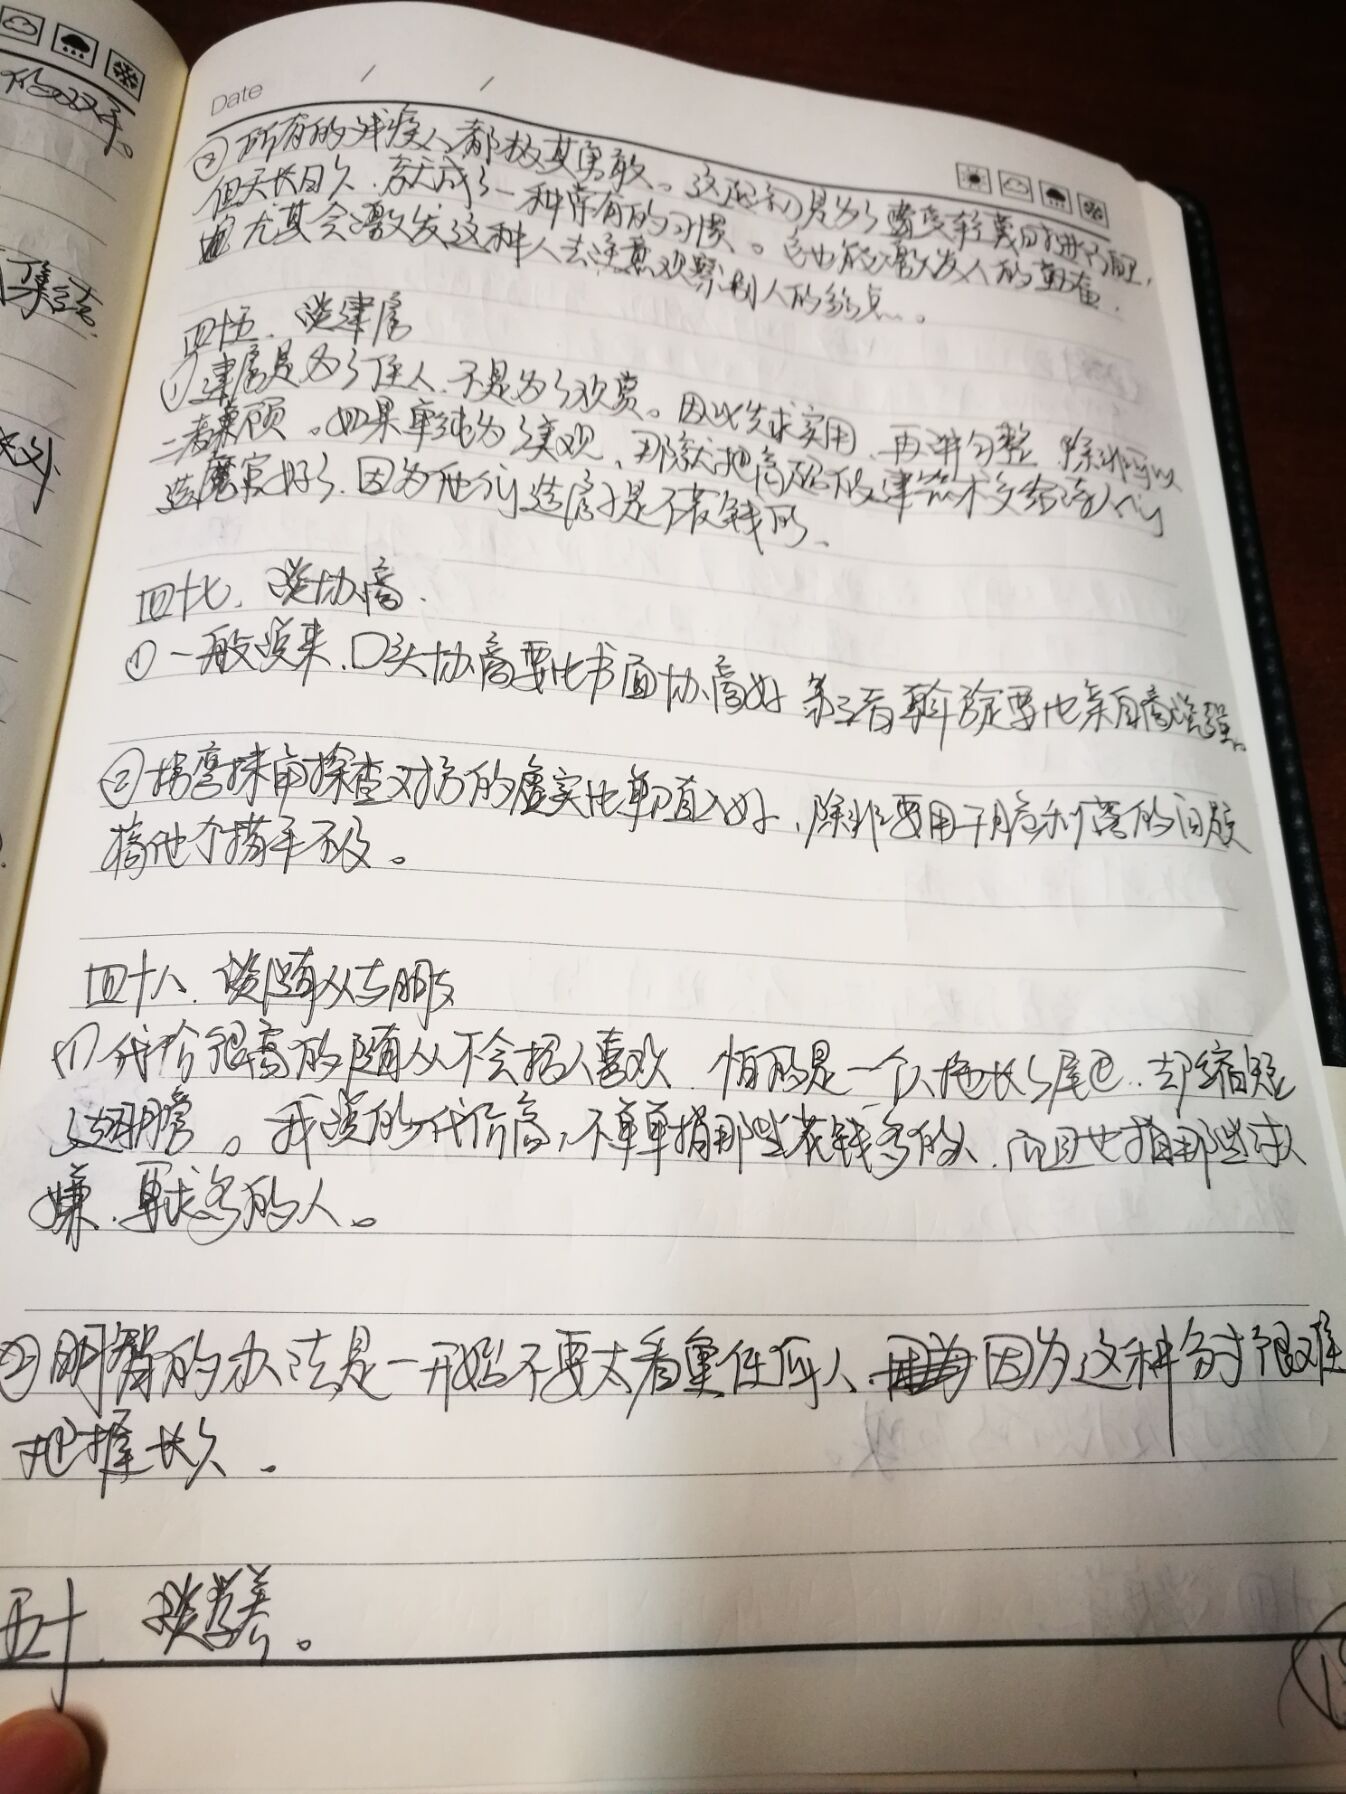 Date / /
② 所有的残疾人都极其勇敢。这起初是为了遭受轻蔑时进行自卫,
但天长日久,就成了一种常有的习惯。它也能激发人的勤奋,
尤其会激发这种人去注意观察别人的弱点。
四十五、谈建房
① 建房是为了住人,不是为了欣赏。因此先求实用,再讲匀整,除非可以
二者兼顾。如果单纯为了美观,那就把高超的建筑术交给诗人们
造魔宫好了,因为他们造房子是不花钱的。
四十七、谈协商.
① 一般说来,口头协商要比书面协商好,第三者斡旋要比亲自商谈强。
② 拐弯抹角探查对方的虚实比单刀直入好,除非要用干脆利落的问题
搞他个措手不及。
四十八、谈随从与朋友
① 代价很高的随从不会招人喜欢,怕的是一个人拖长了尾巴,却缩短
了翅膀。我说的代价高,不单单指那些花钱多的人,而且也指那些讨人
嫌,要求多的人。
② 明智的办法是一开始不要太看重任何人,因为这种分寸很难
把握长久。
五十、谈学养。
不
集